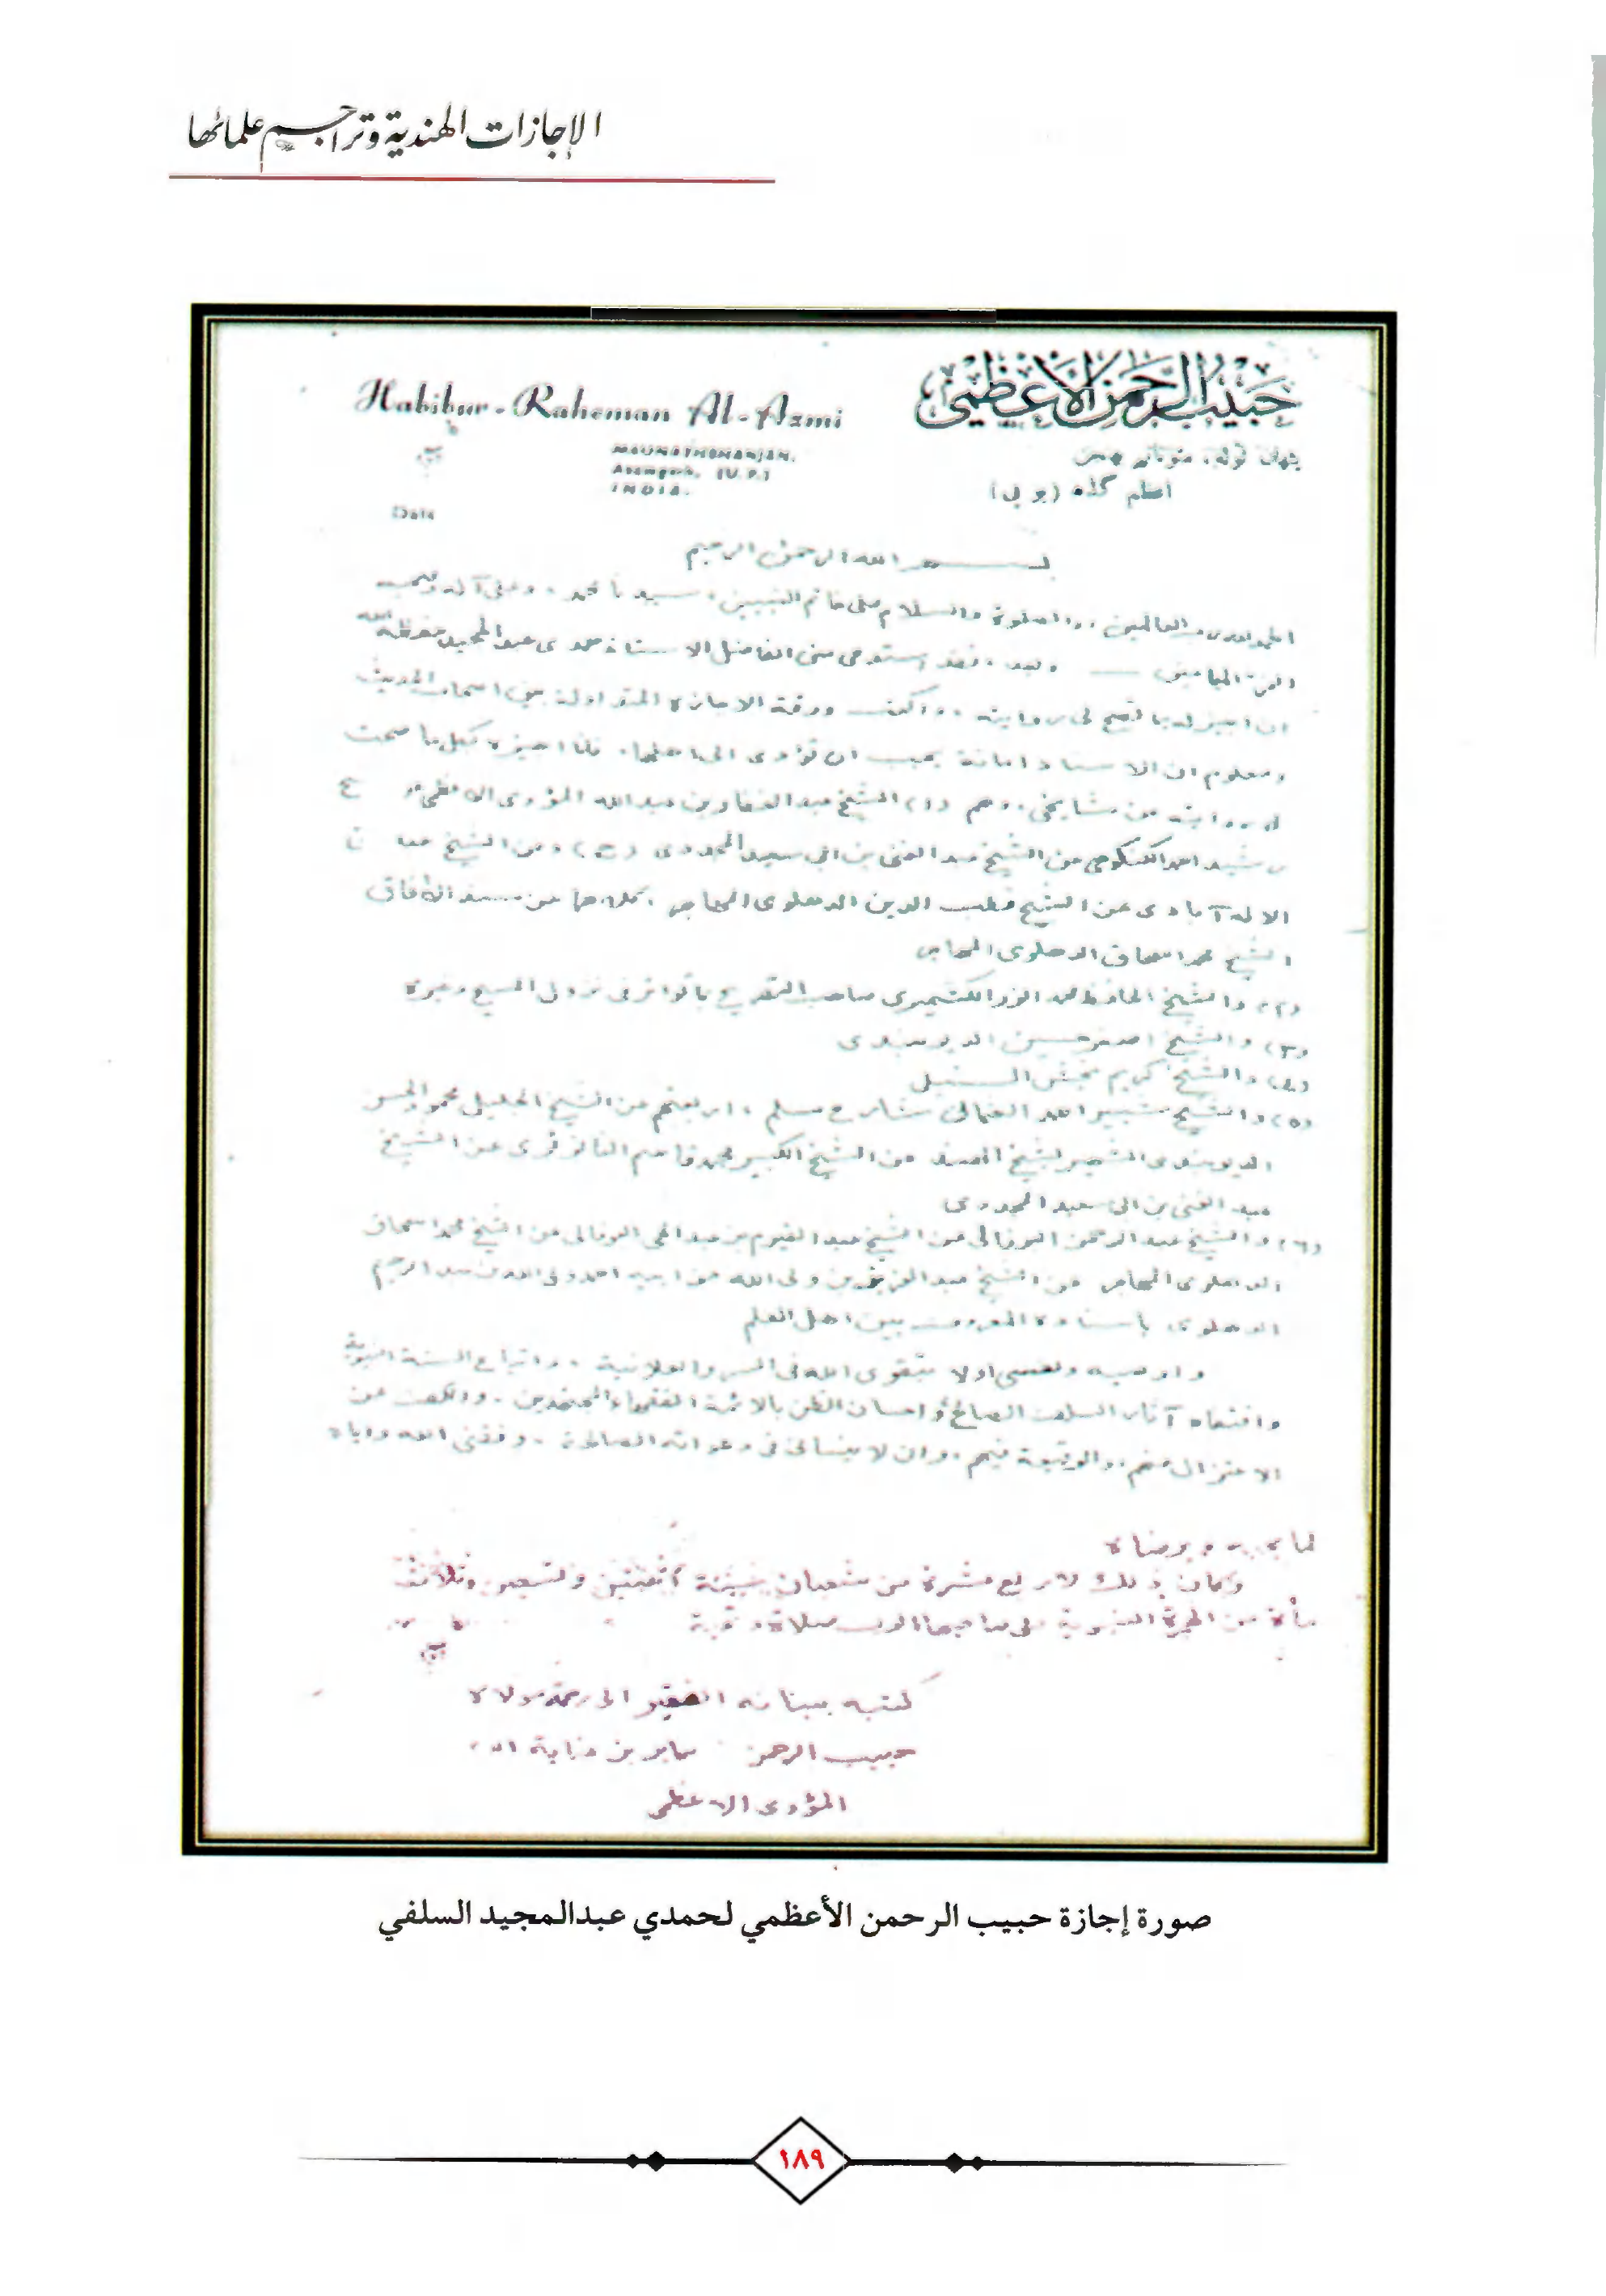 الإجازات الهندية وتراجم علمائها
حبيب الرحمن الأعظمي
Habibur-Raheman Al-Azmi
MAUNATHBHANJAN,
Azamgarh. (U.P.)
INDIA.
اعظم گڈه (يو پي)
Date
بسم الله الرحمن الرحيم
الحمد لله رب العالمين، والصلوة والسلام على خاتم النبيين، سيدنا محمد، وعلى آله وصحبه
الغر الميامين — وبعد، فقد استدعى مني الفاضل الاستاذ حمدي عبد المجيد حفظه الله
ان اجيز له بما تصح لي روايته، واكتب ورقة الاجازة المتداولة بين اصحاب الحديث
ومعلوم ان الاسناد امانة يجب ان تؤدى الى اهلها، فانا اجيزه بكل ما صحت
لي روايته من مشايخي، وهم (١) الشيخ عبد الغفار بن عبد الله المؤوي الاعظمي
رشيد احمد الكنكوهي عن الشيخ عبد الغني بن ابي سعيد المجددي (ح) وعن الشيخ
الاله آبادي عن الشيخ قطب الدين الدهلوي المهاجر، كلاهما عن مسند الآفاق
الشيخ محمد اسحاق الدهلوي المهاجر
(٢) والشيخ الحافظ محمد انور الكشميري صاحب التصريح بما تواتر في نزول المسيح وغيره
(٣) والشيخ اصغر حسين الديوبندي
(٤) والشيخ كريم بخش السنبلي
(٥) والشيخ شبير احمد العثماني شارح مسلم، اربعتهم عن الشيخ الجليل محمود الحسن
الديوبندي الشهير بشيخ الهند عن الشيخ الكبير محمد قاسم النانوتوي عن الشيخ
عبد الغني بن ابي سعيد المجددي
(٦) والشيخ عبد الرحمن البوفالي عن الشيخ عبد القيوم بن عبد الحي البوفالي عن الشيخ محمد اسحاق
الدهلوي المهاجر عن الشيخ عبد العزيز بن ولي الله عن ابيه احمد ولي الله بن عبد الرحيم
الدهلوي باسناده المعروف بين اهل العلم
واوصيه ونفسي اولا بتقوى الله في السر والعلانية، واتباع السنة النبوية
واقتفاء آثار السلف الصالح واحسان الظن بالائمة الفقهاء المجتهدين، والكف عن
الاعتزال عنهم، والوقيعة فيهم، وان لا ينساني في دعواته الصالحة، وفقني الله واياه
لما يحبه ويرضاه
وكان ذلك لاربع عشرة من شعبان سنة اثنتين وتسعين وثلاث
مأة من الهجرة النبوية على صاحبها الوف صلاة وتحية
كتبه ببنانه الفقير الى رحمة مولاه
حبيب الرحمن بن صابر بن عناية الله
المؤوي الاعظمي
صورة إجازة حبيب الرحمن الأعظمي لحمدي عبدالمجيد السلفي
١٨٩